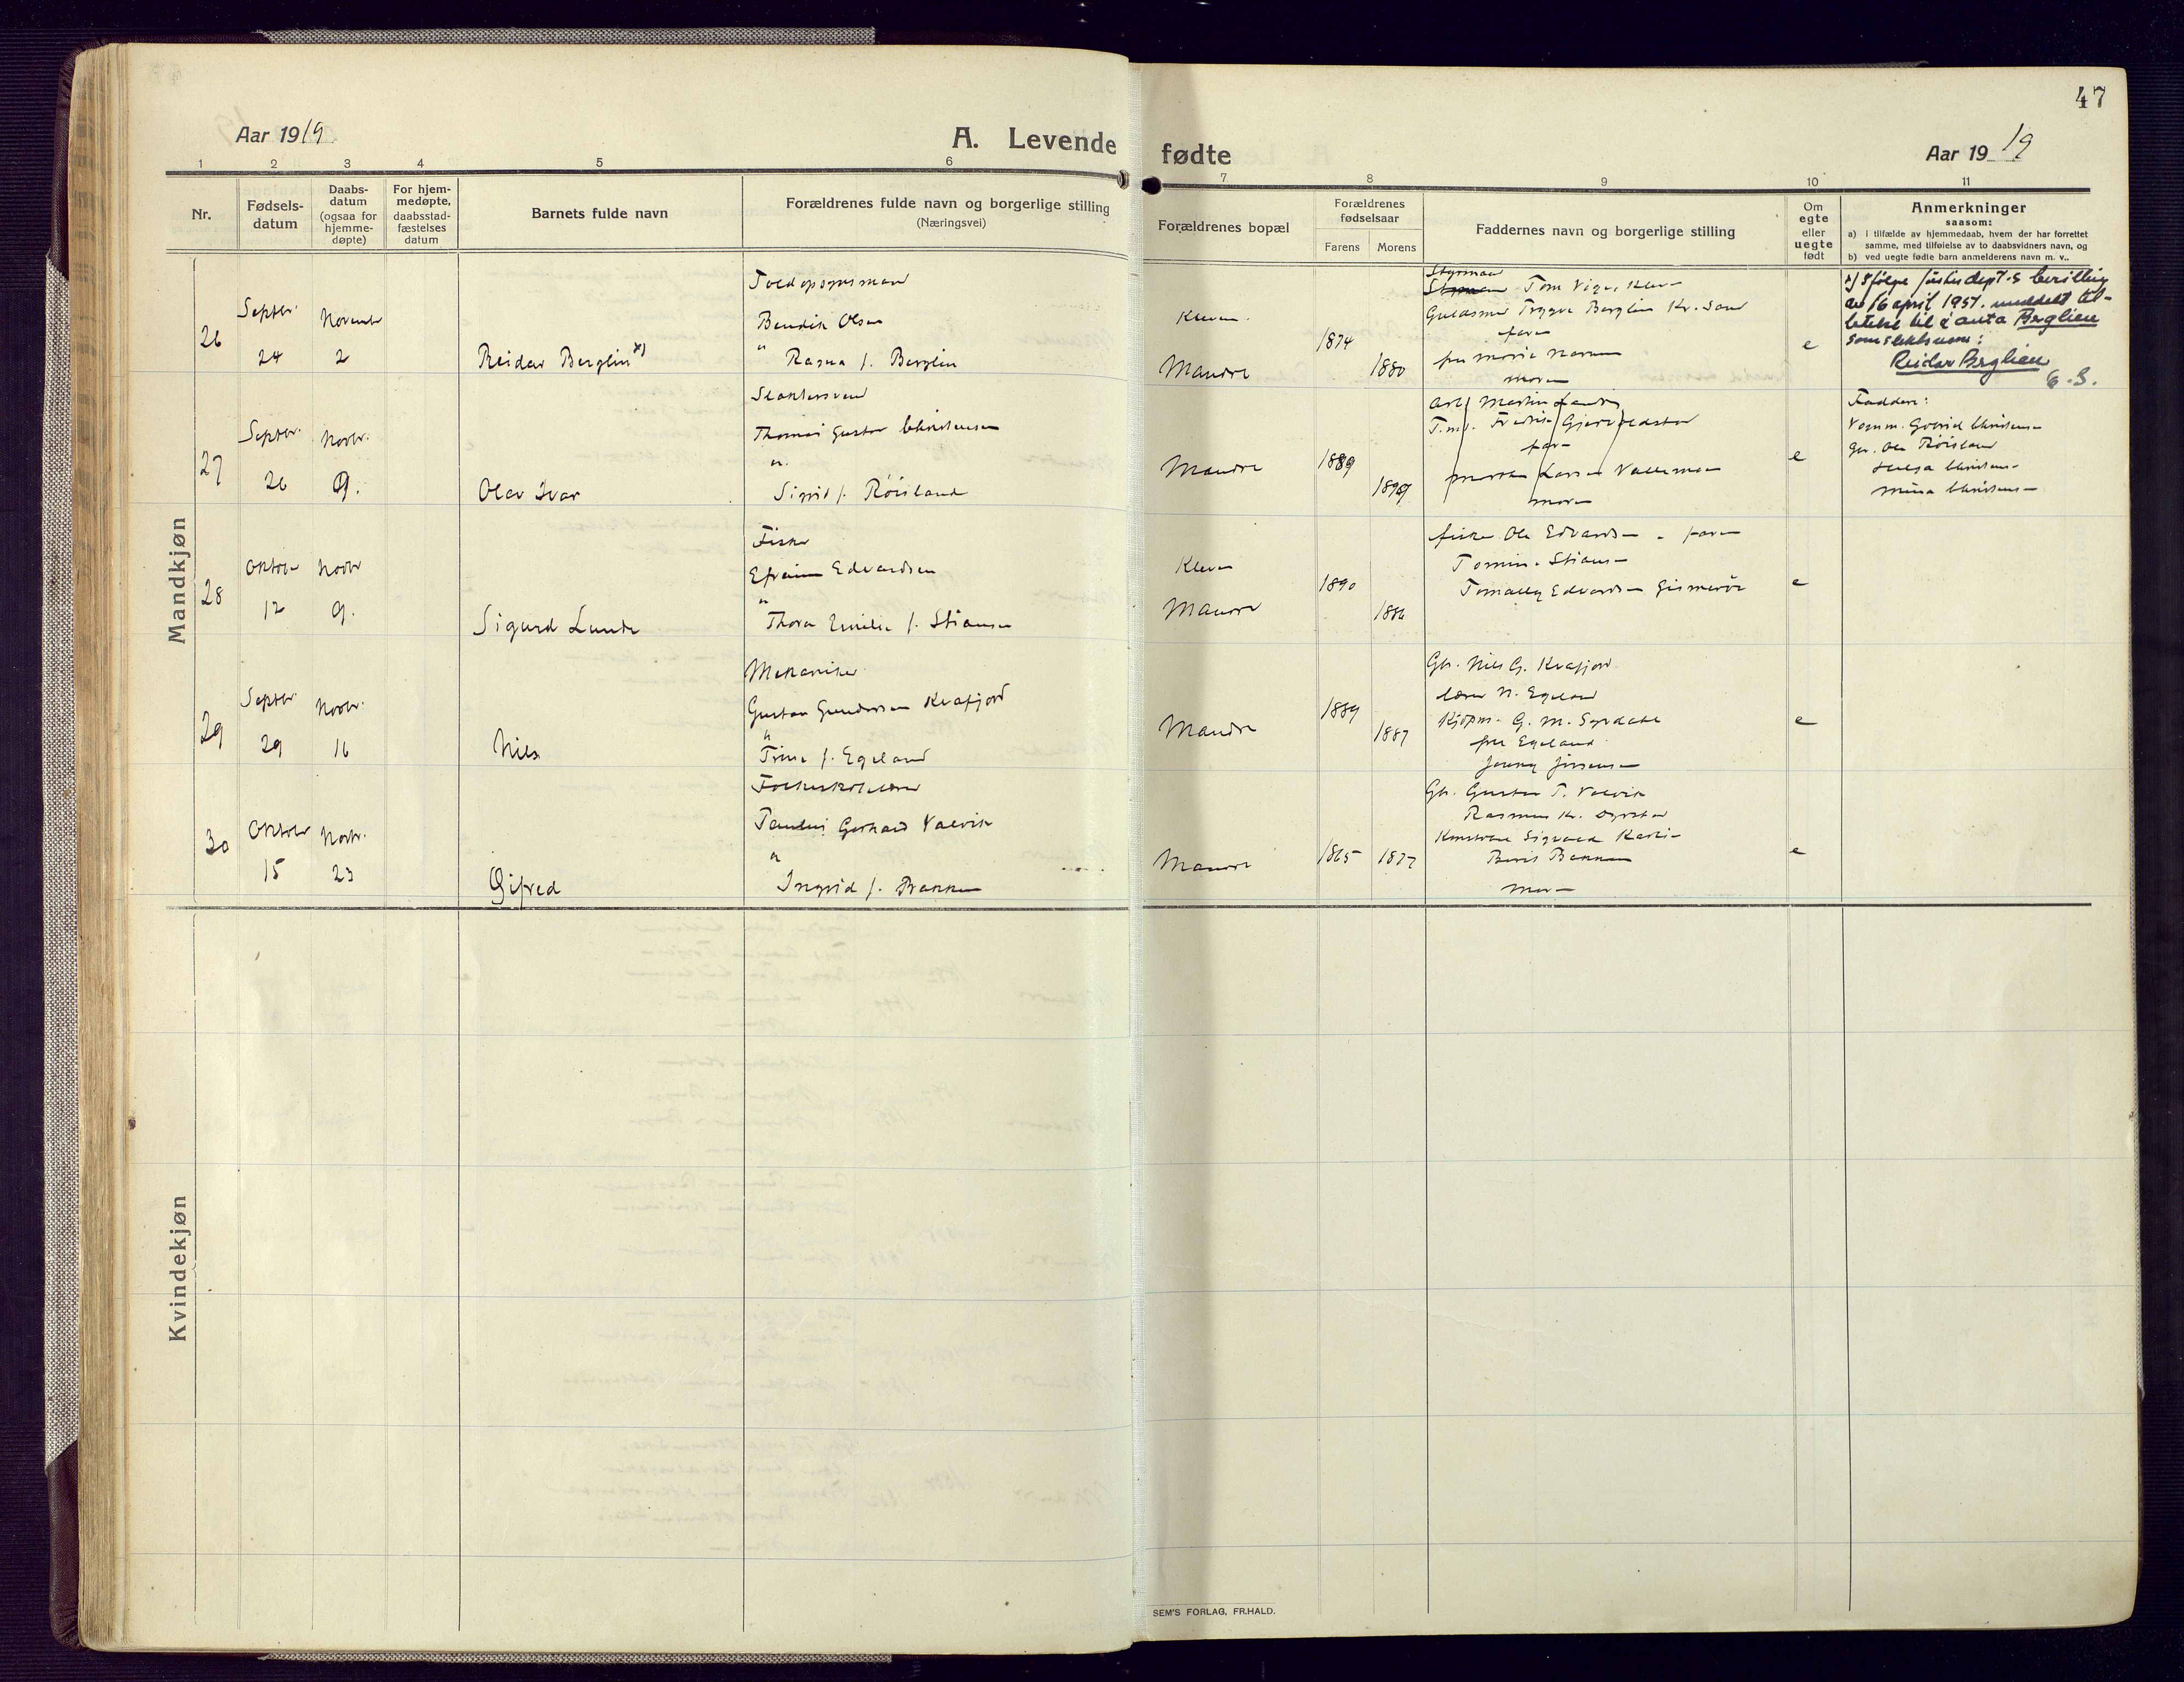 47
Aar 1919
A. Levende
fødte
Aar 1919
1 2 3 4 5 6 7 8 9 10 11
Nr.
Fødsels-
datum
Daabs-
datum
(ogsaa for
hjemme-
døpte)
For hjem-
medøpte,
daabsstad-
fæstelses
datum
Barnets fulde navn
Forældrenes fulde navn og borgerlige stilling
(Næringsvei)
Forældrenes bopæl
Forældrenes
fødselsaar
Farens Morens
Faddernes navn og borgerlige stilling
Om
egte
eller
uegte
født
Anmerkninger
saasom:
a) i tilfælde av hjemmedaab, hvem der har forrettet
samme, med tilføielse av to daabsvidners navn, og
b) ved uegte fødte barn anmelderens navn m. v..
Mandkjøn
26
Septbr.
24
November
2
Reidar Berglin x)
Toldopsynsmand
Bendik Olsen
" Ragna f. Berglin
Kleven
Mandal
1874
1880
Styrmand
Tom Vige, Kleven
Guldsmed Trygve Berglin Kr.sand
faren
fru Marie
moren
e
x) Ifølge justisdept.s bevilling
av 16 april 1957. meddelt til-
latelse til å anta Berglien
som slektsnavn:
Reidar Berglien
27
Septbr.
26
Novbr.
9.
Olav Ivar
Thomas Gustav Christensen
"
Sigrid f. Røisland
Mandal
1889
faren
moren
e
Faddere:
Ole Røisland
Christensen
Mina Christensen
28
Oktober
12
Novbr
9.
Sigurd Lunde
Fisker
Efraim Edvardsen
"
Thora Emilie f. Stiansen
Kleven
Mandal
1890
1886
fisker Ole Edvardsen - faren
Stiansen
Edvardsen Gismerøe
e
29
Septbr.
29
Novbr.
16
Nils
Mekaniker
Gustav Gundersen Kvafjord
"
Trine f. Egeland
Mandal
1889
1887
Gbr. Nils G. Kvafjord
lærer N. Egeland
Kjøpm. G. M. Syrdahl
fru Egeland
e
30
Oktober
15
Novbr.
23
Gifred
Folkeskolelærer
Gerhard Valvik
"
Ingrid f. Bakken
Mandal
1865
1877
Gbr. Gustav T. Valvik
Rasmus Kr.
Sigvald
Berit Bakken
moren
e
Kvindekjøn
SEM'S FORLAG, FR.HALD.